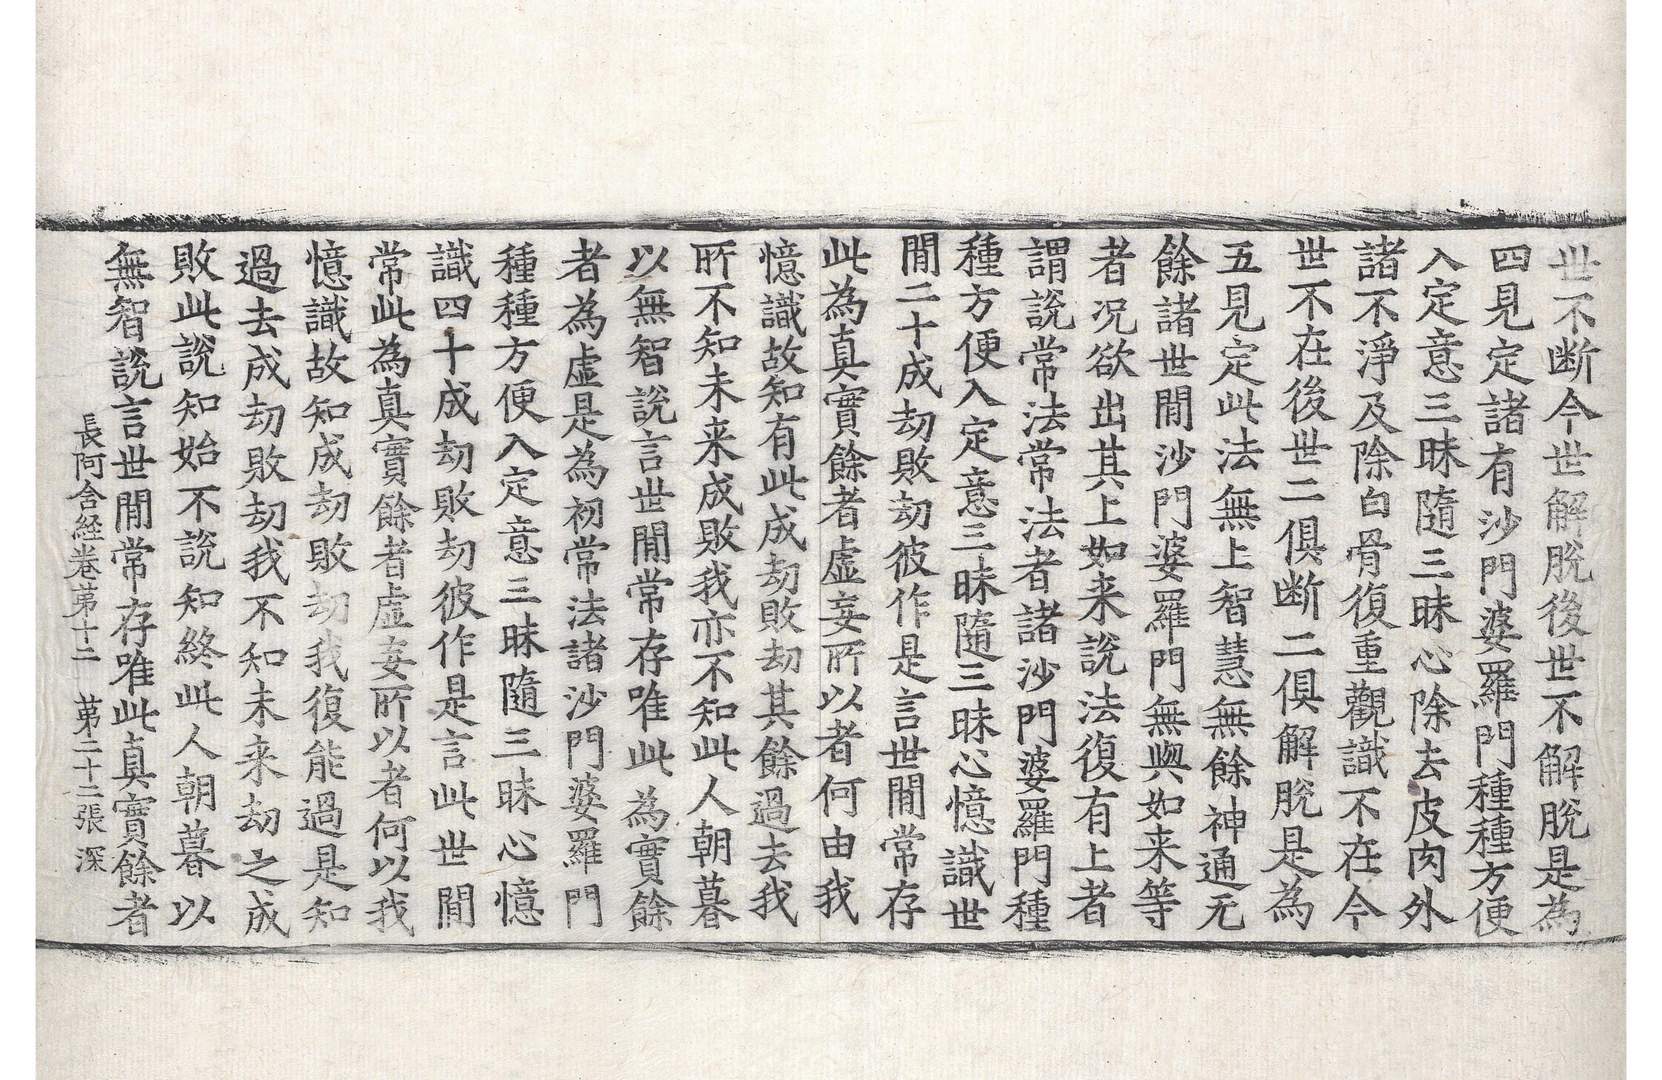 世不断今世解脫後世不解脫是為
四見定諸有沙門婆羅門種種方便
入定意三昧隨三昧心除去皮肉外
諸不淨及除白骨復重觀識不在今
世不在後世二俱断二俱解脫是為
五見定此法無上智慧無餘神通无
餘諸世閒沙門婆羅門無與如来等
者况欲出其上如来說法復有上者
謂說常法常法者諸沙門婆羅門種
種方便入定意三昧隨三昧心憶識世
閒二十成劫敗劫彼作是言世閒常存
此為真實餘者虛妄所以者何由我
憶識故知有此成劫敗劫其餘過去我
所不知未来成敗我亦不知此人朝暮
以無智說言世閒常存唯此為實餘
者為虛是為初常法諸沙門婆羅門
種種方便入定意三昧隨三昧心憶
識四十成劫敗劫彼作是言此世閒
常此為真實餘者虛妄所以者何以我
憶識故知成劫敗劫我復能過是知
過去成劫敗劫我不知未来劫之成
敗此說知始不說知終此人朝暮以
無智說言世閒常存唯此真實餘者
長阿含経卷第十二　第二十二張　深